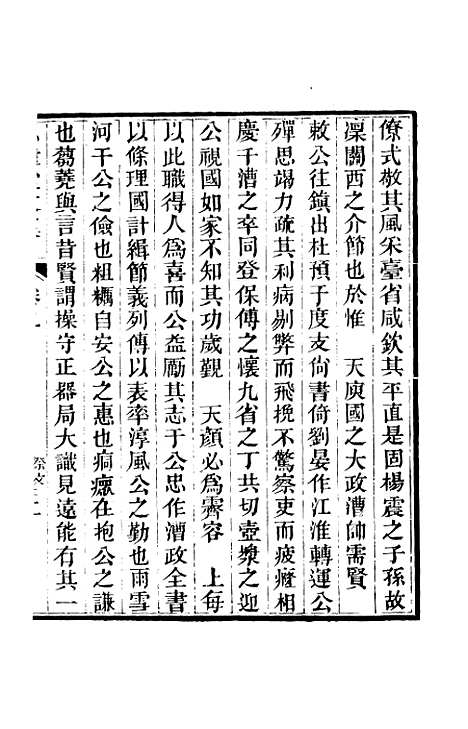 僚式敬其風采臺省咸欽其平直是固楊震之子孫故
凜關西之介節也於惟　天庾國之大政漕帥需賢
敕公往鎮出杜預于度支尚書倚劉晏作江淮轉運公
殫思竭力疏其利病剔弊而飛挽不驚察吏而疲癃相
慶千漕之卒同登保傅之懷九省之丁共切壺漿之迎
公視國如家不知其功歲覲　天顏必爲霽容　上每
以此職得人爲喜而公益勵其志于公忠作漕政全書
以條理國計緝節義列傳以表率淳風公之勤也雨雪
河干公之儉也粗糲自安公之惠也痌瘝在抱公之謙
也蒭蕘與言昔賢謂操守正器局大識見遠能有其一